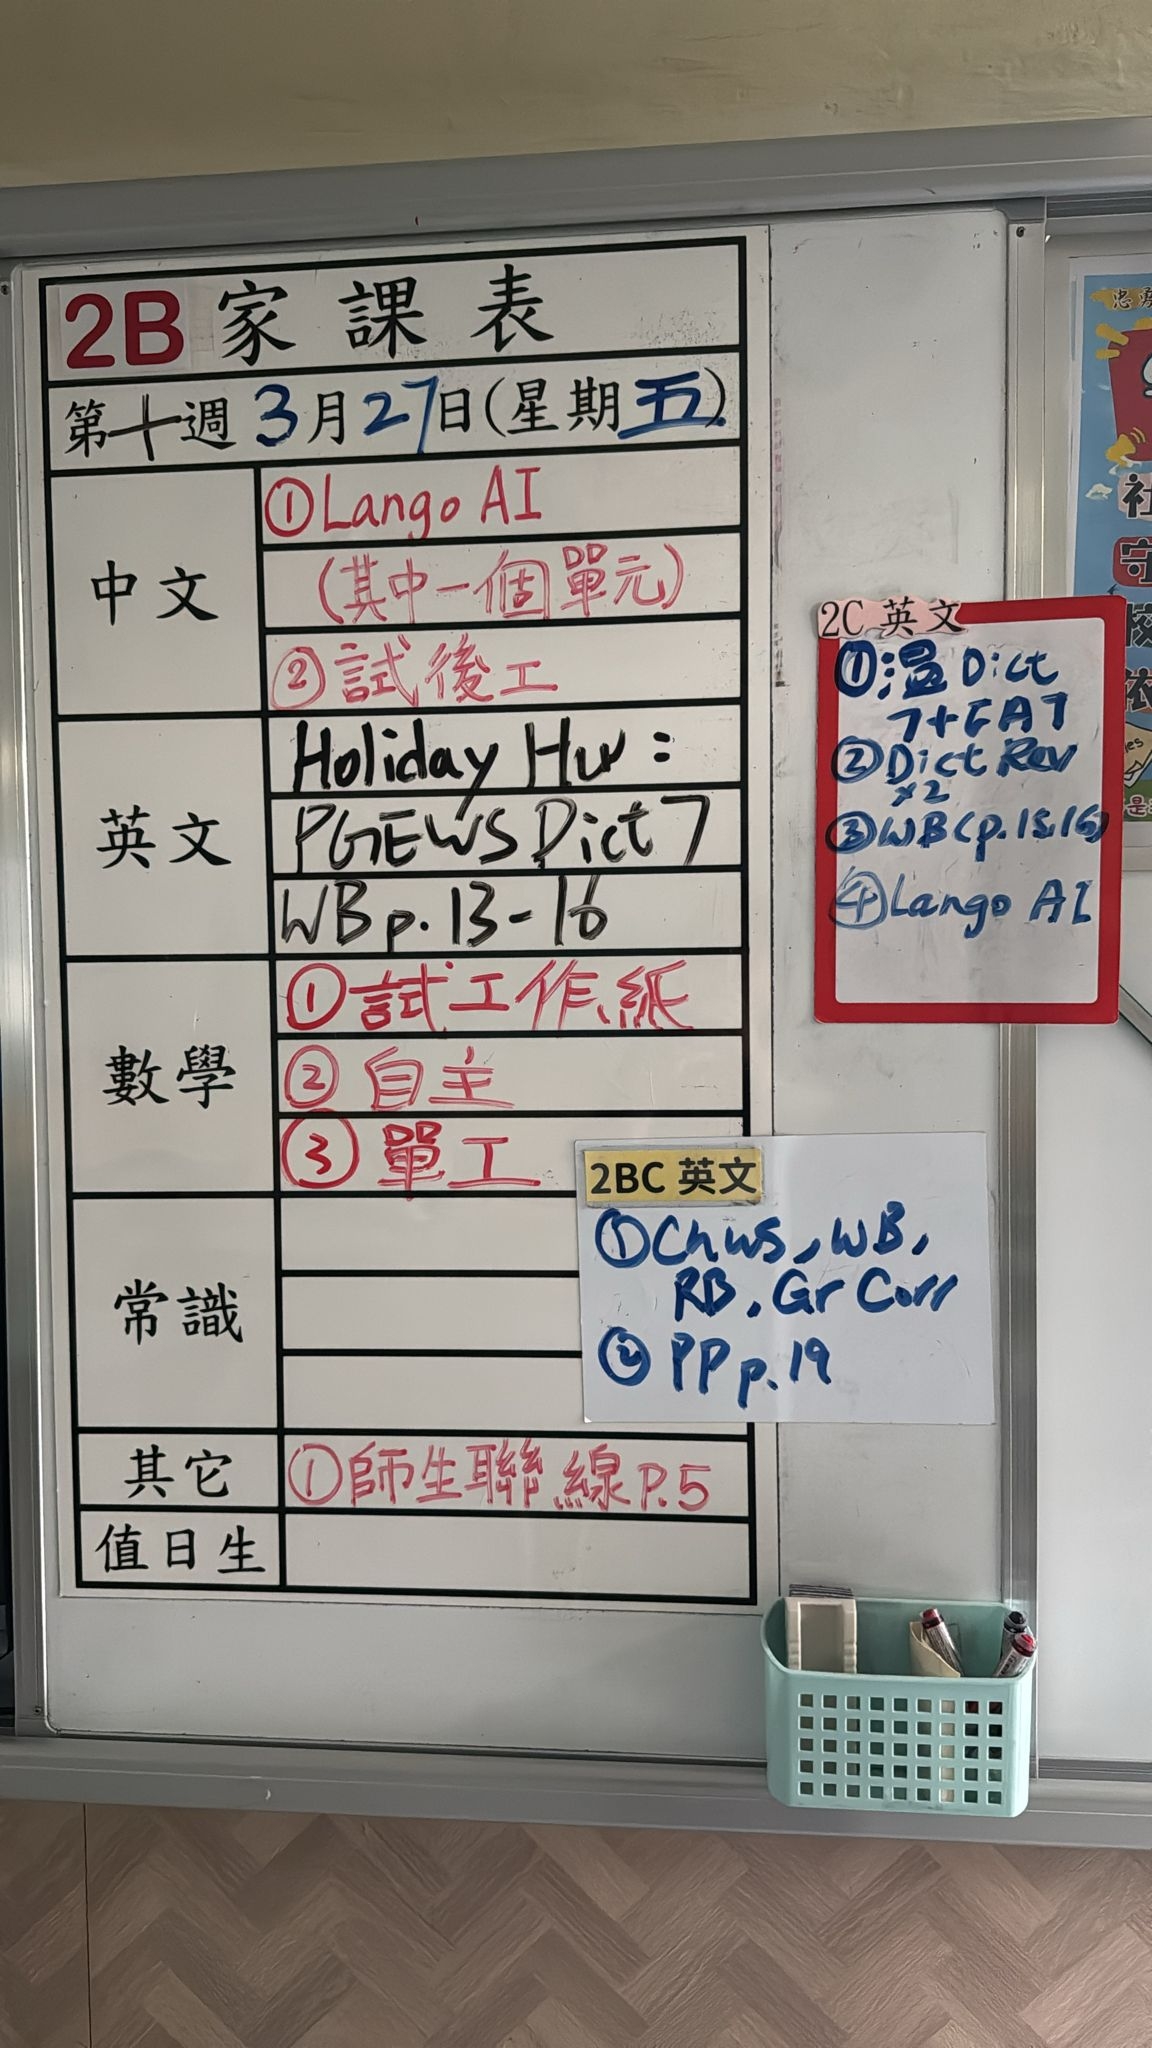 2B 家課表
第十週 3月27日(星期五)
中文
①Lango AI
(其中一個單元)
②試後工
英文
Holiday Hw:
PGEWS Dict 7
WB p. 13-16
數學
①試工作紙
②自主
③單工
常識
其它
①師生聯線P.5
值日生
2C 英文
①溫Dict
7+EA7
②Dict Rev
x2
③WB(p.15,16)
④Lango AI
2BC 英文
①Ch WS, WB,
RB, Gr Corr
②PP p.19
忠勇
社
守
校
依